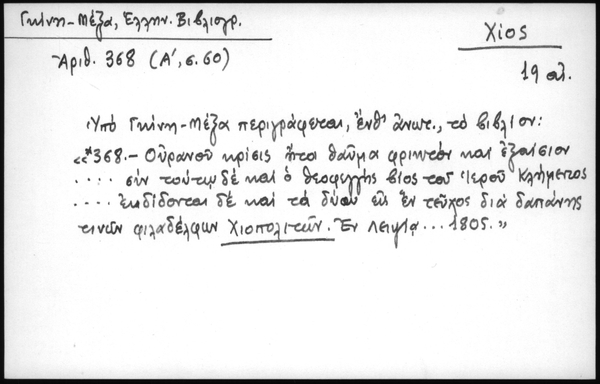 Γκίνη-Μέξα, Ἑλλην. Βιβλιογρ.
Χίος
Ἀριθ. 368 (Α', σ. 60)
19 αἰ.
Ὑπό Γκίνη-Μέξα περιγράφεται, ἔνθ' ἀνωτ., τό βιβλίον:
«*368.- Οὐρανοῦ κρίσις ἤτοι θαῦμα φρικτόν καί ἐξαίσιον
.... σύν τούτῳ δέ καί ὁ θεοφεγγής βίος τοῦ Ἱεροῦ Κλήμεντος
.... ἐκδίδονται δέ καί τά δύω εἰς ἕν τεῦχος διά δαπάνης
τινῶν φιλαδέλφων Χιοπολιτῶν. Ἐν Λειψίᾳ... 1805.»